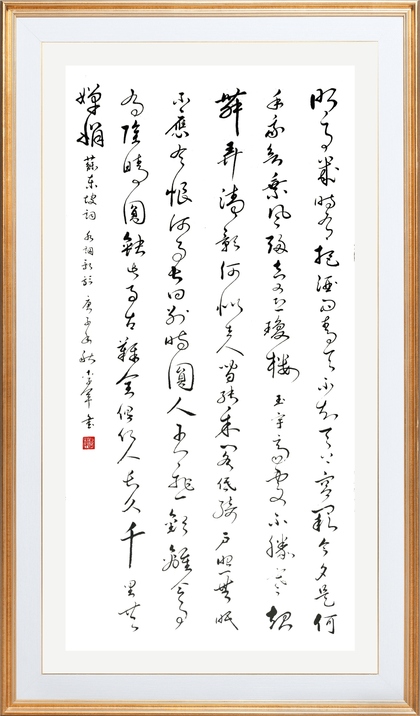 明月幾時有把酒問青天不知天上宮闕今夕是何
年我欲乘風歸去又恐瓊樓玉宇高處不勝寒起
舞弄清影何似在人間轉朱閣低綺戶照無眠
不應有恨何事長向別時圓人有悲歡離合月
有陰晴圓缺此事古難全但願人長久千里共
嬋娟
蘇東坡詞 水調歌頭 庚子年秋 書